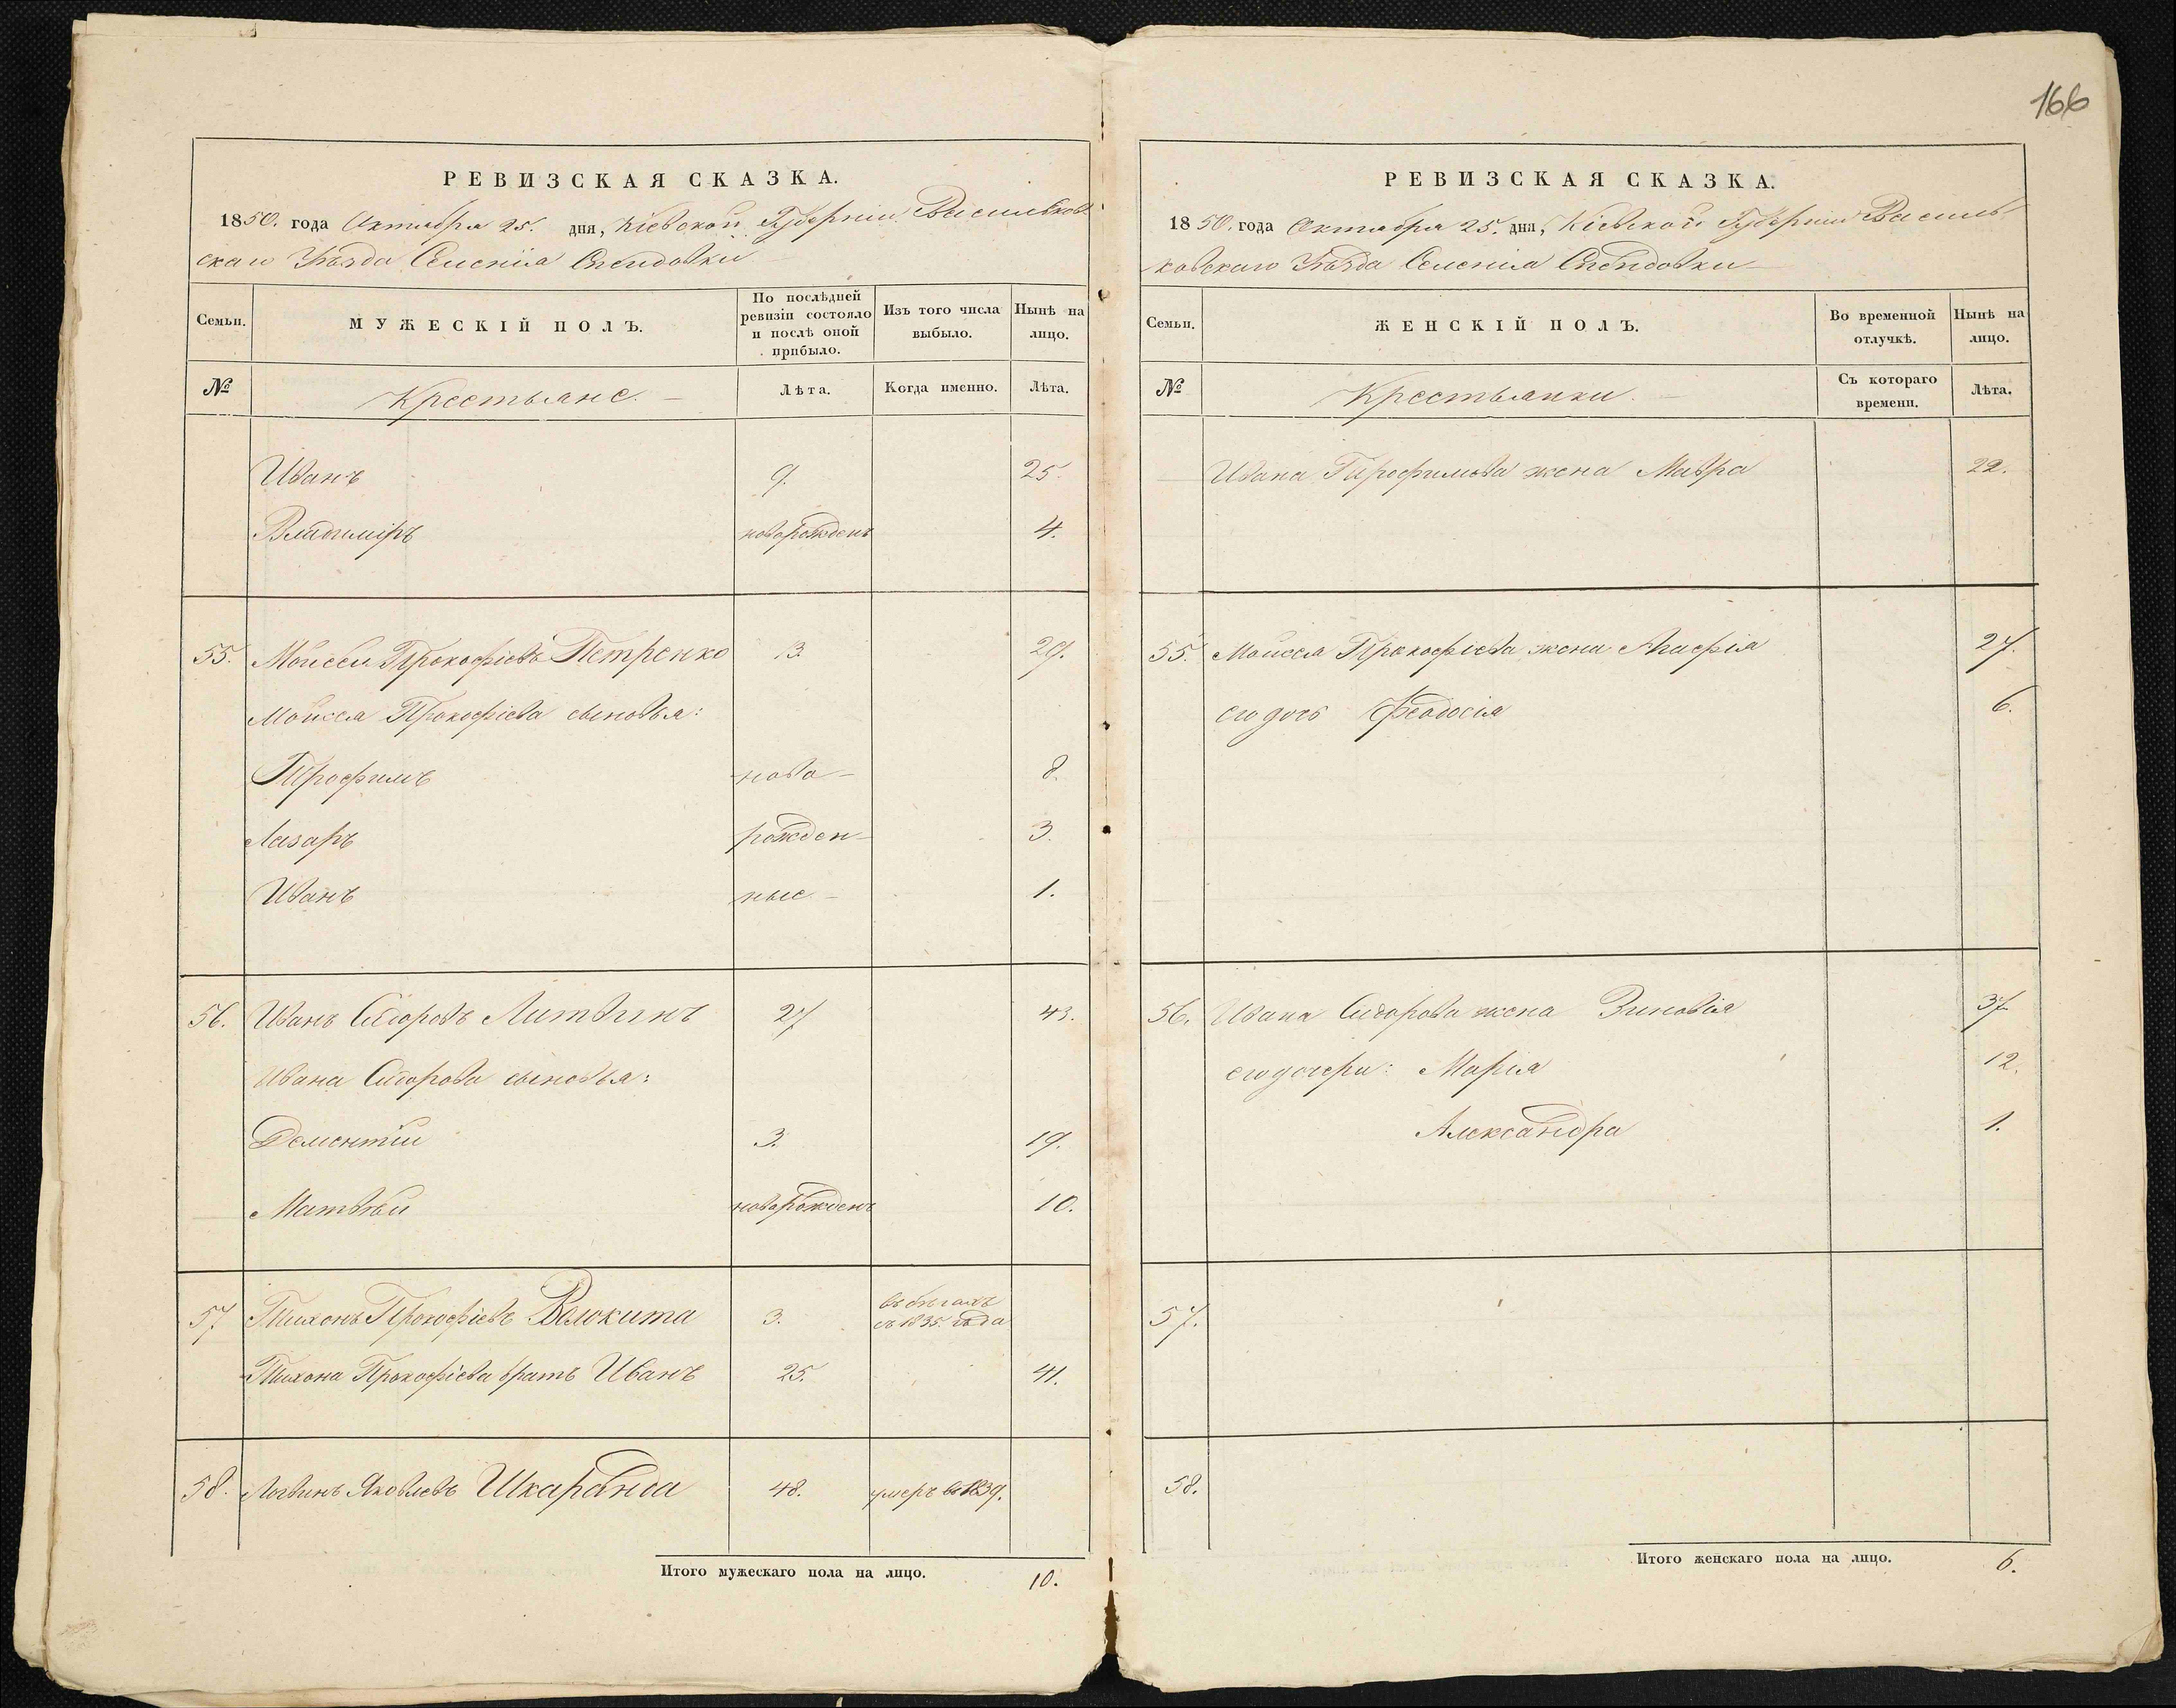 166
РЕВИЗСКАЯ СКАЗКА.
1850. года Октября 25. дня, Кіевской Губерніи Васильков-
скаго Уѣзда Селенія
Семьи. МУЖЕСКІЙ ПОЛЪ. По послѣдней ревизіи состояло и послѣ оной прибыло. Изъ того числа выбыло. Нынѣ на лицо.
№ Крестьяне. Лѣта. Когда именно. Лѣта.
Иванъ 9. 25.
Владиміръ новорожденъ 4.
55. Моисей Прокофіевъ Петренко 13. 29.
Моисея Прокофіева сыновья:
Трофимъ ново- 8.
Лазарь рожден- 3.
Иванъ ные 1.
56. Иванъ Сидоровъ Литвинъ 27 43.
Ивана Сидорова сыновья:
Дементій 3. 19.
Матвѣй новорожденъ 10.
57 Тихонъ Прокофіевъ Волокита 3. въ бѣгахъ съ 1835. года
Тихона Прокофіева братъ Иванъ 25. 41.
58. Логвинъ Яковлевъ 48. умеръ въ 1839.
Итого мужескаго пола на лицо. 10.
РЕВИЗСКАЯ СКАЗКА.
1850. года Октября 25. дня, Кіевской Губерніи Василь-
ковскаго Уѣзда Селенія
Семьи. ЖЕНСКІЙ ПОЛЪ. Во временной отлучкѣ. Нынѣ на лицо.
№ Крестьянки. Съ котораго времени. Лѣта.
Ивана Трофимова жена Мавра 22.
55. Моисея Прокофіева жена Агафія 27.
его дочь Феодосія 6.
56. Ивана Сидорова жена Зиновія 37
его дочери: Марія 12.
Александра 1.
57.
58.
Итого женскаго пола на лицо. 6.